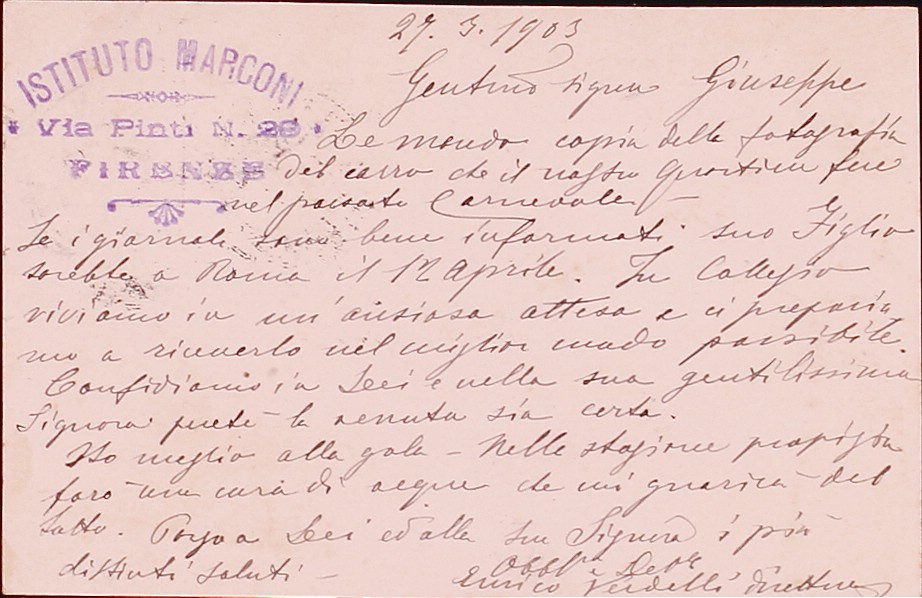 27. 3. 1903
ISTITUTO MARCONI
Via Pinti N. 29
FIRENZE
Gentmo Signor Giuseppe
Le mando copia della fotografia
del carro che il nostro fece
nel passato Carnevale –
Se i giornali sono bene informati suo Figlio
sarebbe a Roma il 12 Aprile. In Collegio
viviamo in un'ansiosa attesa e ci preparia
mo a riceverlo nel miglior modo possibile.
Confidiamo in Lei e nella sua gentilissima
Signora perchè la venuta sia certa.
Sto meglio alla gola – Nella stagione propizia
farò una cura di acque che mi guarirà del
tutto. Porga a Lei ed alla sua Signora i più
distinti saluti –
Enrico Verdelli direttore